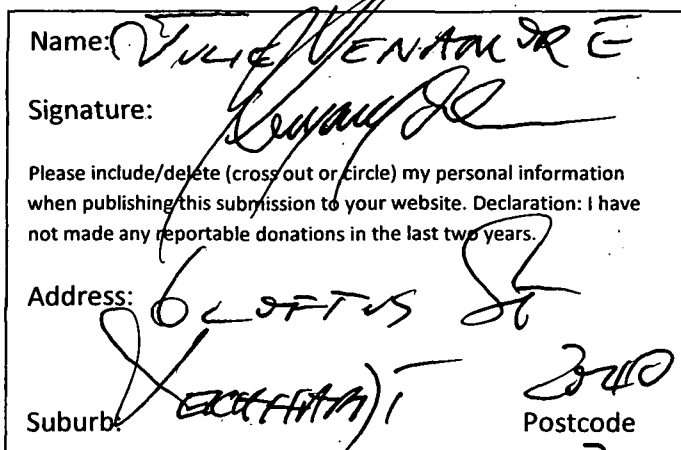 Name: JULIE VENAMORE
Signature:
Please include/delete (cross out or circle) my personal information
when publishing this submission to your website. Declaration: I have
not made any reportable donations in the last two years.
Address: 6 LOFTUS St
Suburb: LEICHHARDT 2040
Postcode